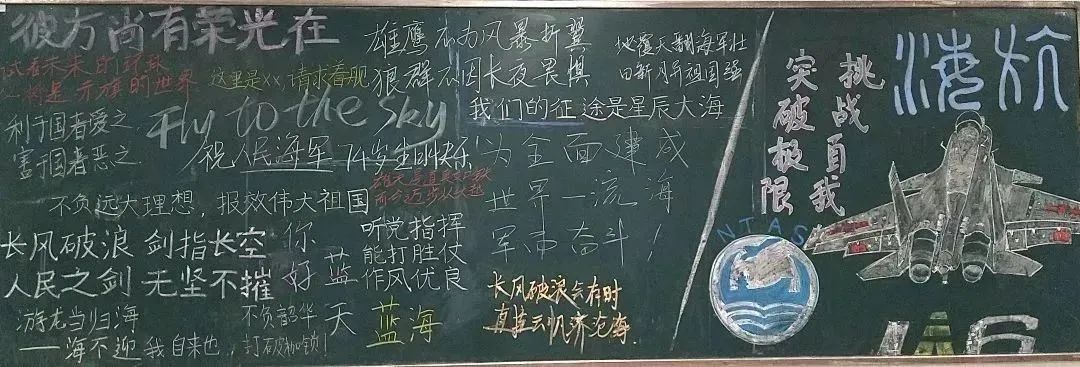 彼方尚有荣光在
试看未来的环球
必将是赤旗的世界
这里是xx,请求着舰
利于国者爱之
害于国者恶之
Fly to the sky
祝人民海军74岁生日快乐
雄鹰不为风暴折翼
狼群不因长夜畏惧
地覆天翻海军壮
日新月异祖国强
我们的征途是星辰大海
雄关漫道真如铁
而今迈步从头越
不负远大理想,报效伟大祖国
长风破浪 剑指长空
人民之剑 无坚不摧
游龙当归海
——海不迎我自来也
不负韶华
打破枷锁!
你好蓝天
听党指挥
能打胜仗
作风优良
蓝海
为全面建成
世界一流海
军而奋斗!
长风破浪会有时
直挂云帆济沧海
挑战自我
突破极限
海航
NTAS